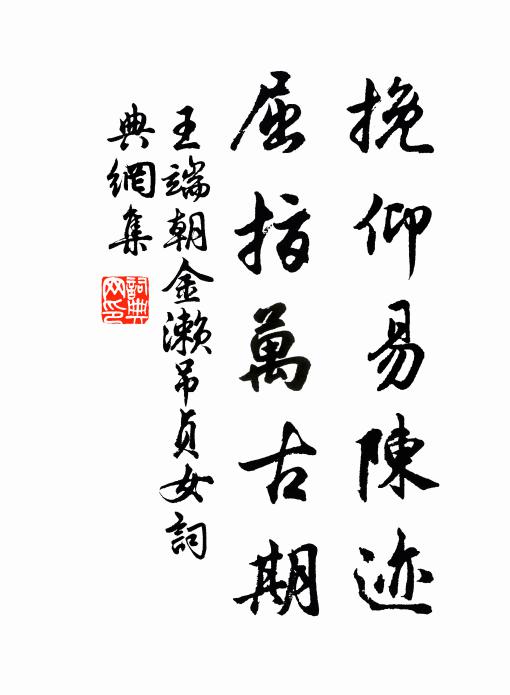 挽仰易陳迹
屈指萬古期
王端朝金瀨吊貞女詞
典網集
詞典网印